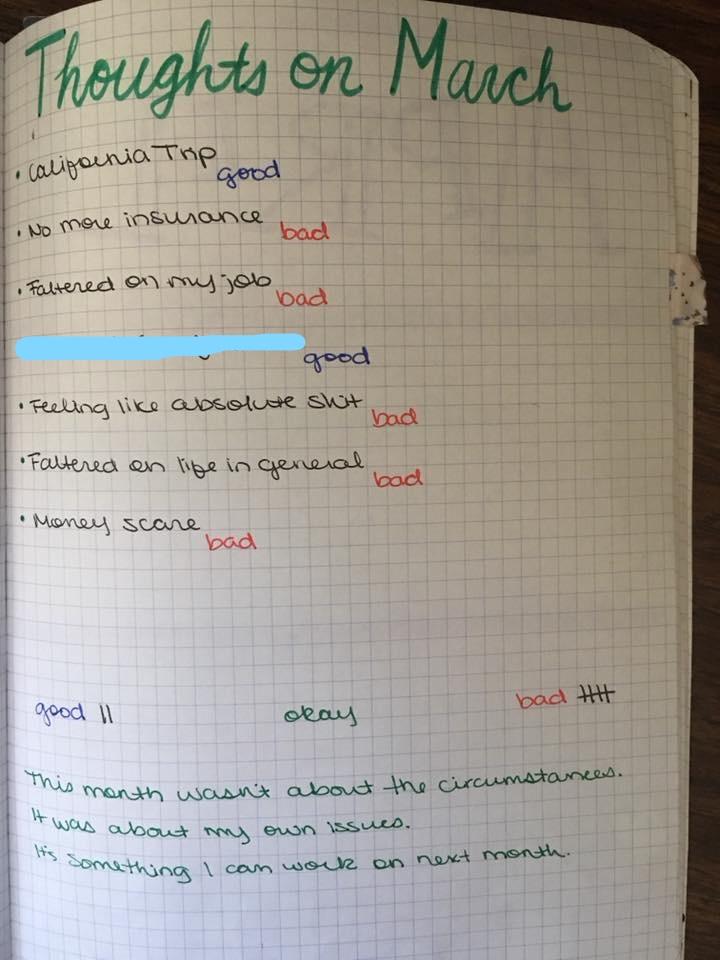 Thoughts on March
• California Trip good
• No more insurance bad
• Faltered on my job bad
good
• Feeling like absolute shit bad
• Faltered on life in general bad
• Money scare bad
good || okay bad ||||
This month wasn't about the circumstances.
It was about my own issues.
It's something I can work on next month.